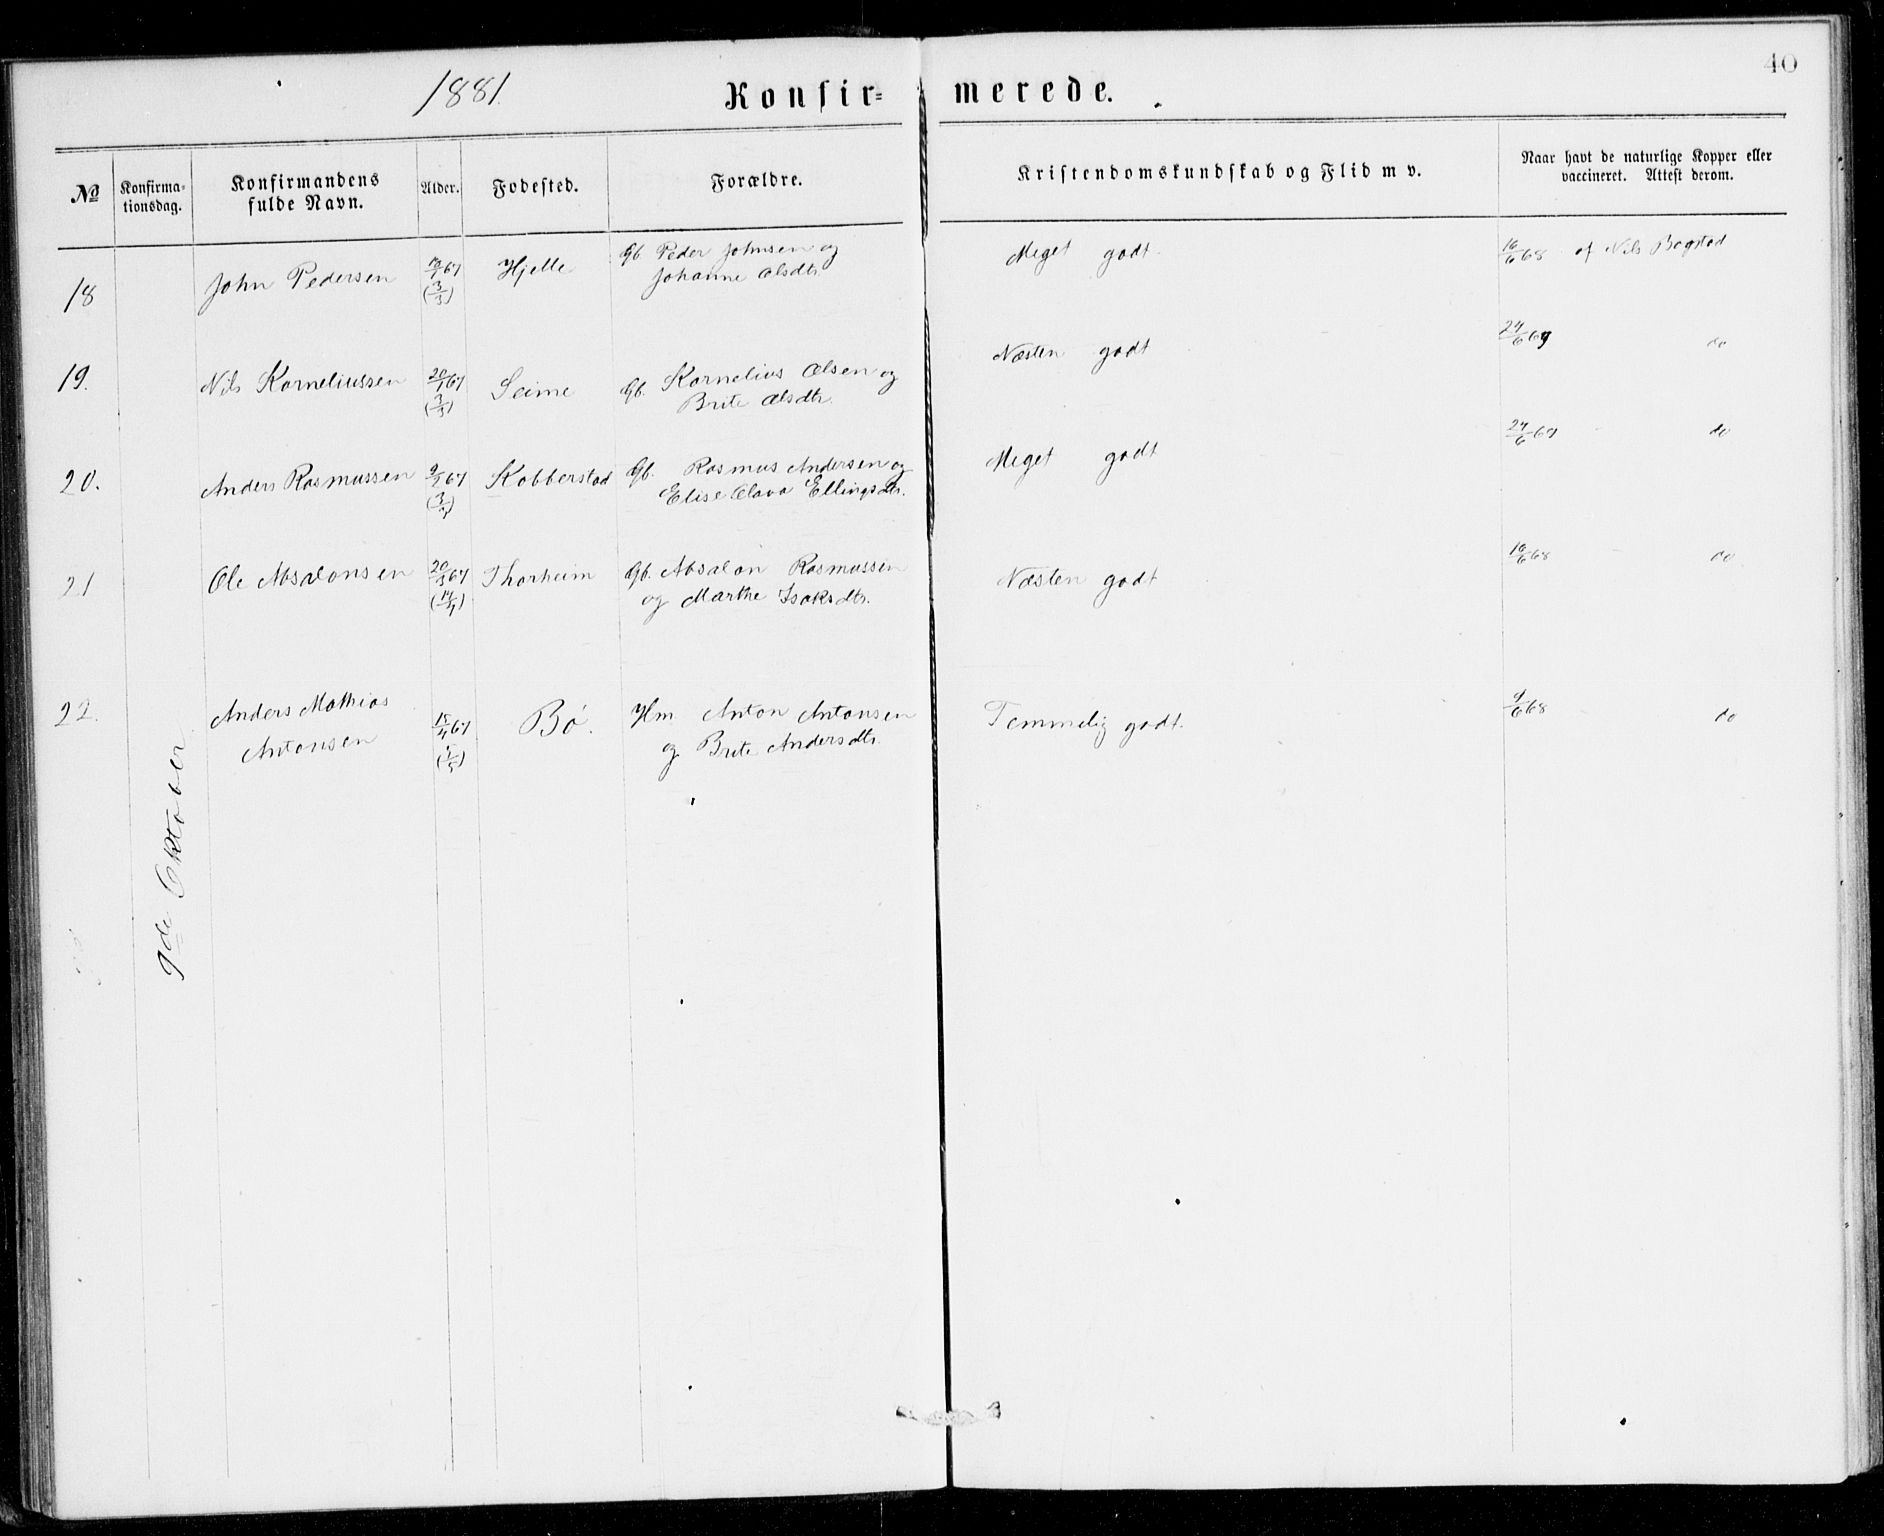 40
1881.
Konfir=merede.
№
Konfirma-
tionsdag.
Konfirmandens
fulde Navn.
Alder.
Fodested.
Forældre.
Kristendomskundskab og Flid m v.
Naar havt de naturlige Kopper eller
vaccineret. Attest derom.
18 John Pedersen Hjelle Gb. Peder Johnsen og Meget godt. 16/6 68 af Nils Bogstad
(3/3) Johanne Olsdtr.
19. Nils Korneliussen 20/1 67 Seime Gb. Kornelius Olsen og Næsten godt do
(3/3) Brite Olsdtr.
20. Anders Rasmussen 67 Kobberstad Gb. Rasmus Andersen og Meget godt 24/6 67 do
(3/3) Elise Olava Ellingsdtr.
21 Ole Absalonsen 20/3 67 Thorheim Gb. Absalon Rasmussen Næsten godt 16/6 68 do
og Marthe Isaksdtr.
22. Anders Mathias 67 Bø. Hm Anton Antonsen Temmelig godt. 68 do
Antonsen og Brite Andersdtr.
9de Oktober